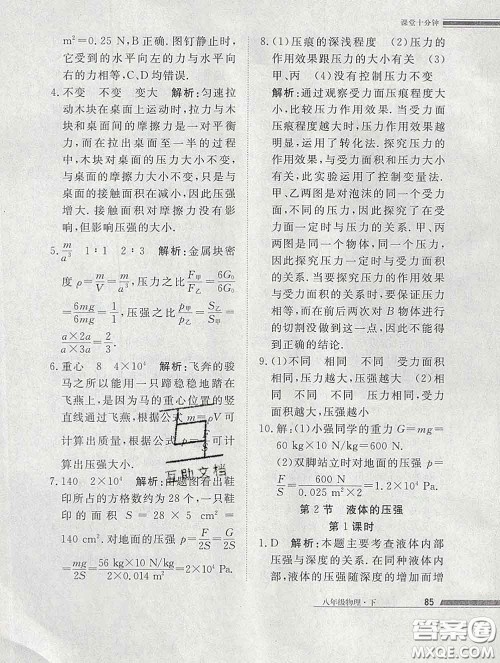 课堂十分钟
m²=0.25 N,B正确. 图钉静止时,
它受到的水平向左的力与水平向
右的力相等,C、D均错误.
4. 不变 不变 变大 解析:匀速拉
动木块在桌面上运动时,拉力与木
块和桌面间的摩擦力是一对平衡
力,而在拉出桌面至一半的过程
中,木块对桌面的压力大小不变,
与桌面的摩擦力大小不变,只是与
桌面的接触面积在减小,因此压强
增大. 但是摩擦力大小与接触面积
无关. 影响压强的大小.
5. m/a³ 1∶1 2∶3 解析:金属块密
度ρ=m/V=m/a³,压力之比F甲/F乙=6G₀/6G₀
=6mg/6mg=1/1,压强之比p甲/p乙=S乙/S甲=
a×2a/a×3a=2/3.
6. 重心 8 4×10⁴ 解析:飞奔的骏
马之所以能用一只蹄稳稳地踏在
飞燕上,是因为马的重心位置的竖
直线通过飞燕,根据公式m=ρV可
计算出质量,根据公式p=F/S可计
算出压强大小.
7. 140 2×10⁴ 解析:本题图看出鞋
印所占的方格数约为28个,一只鞋
面积S=28×5 cm²=
140 cm². 对地面的压强p=F/2S=G/2S
=mg/2S=56 kg×10 N/kg/2×140×10⁻⁴ m²=2×10⁴ Pa.
8. (1)压痕的深浅程度 (2)压力的
作用效果跟压力的大小有关 (3)
甲、丙 (4)没有控制压力不变
解析:通过观察受力面压痕程度大
小,比较压力作用效果. 当受力面
压痕程度越大时,压力作用效果越
明显,运用了转化法. 探究压力的
作用效果与受力面积和压力大小
有关,此实验运用了控制变量法.
甲、乙两图是对泡沫的同一个受力
面积大小不变,因此探究了在受力
面积一定时与压力的关系. 甲、丙
两图一定时与受力面积
的关系. 当要探究压力的作用效果
与受力面积的关系时,要保证压力
一定. 而在前后两次对B物体进行
的切割没做到这一点,因此不能得
出正确的结论.
9. (1)不同 相同 不同 受力面积
相同,压力越大,压强越大 (2)相
同 不同 不同 压力相同,受力
面积越小,压强越大
10. 解:(1)小强同学的重力G=mg=
60 kg×10 N/kg=600 N.
(2)双脚站立时对地面的压强p=
F/S=600 N/0.025 m²×2=1.2×10⁴ Pa.
第2节 液体的压强
第1课时
1. D 解析:本题主要考查液体内部
压强与深度的关系. 因液体内部存
在压强,同种液体压强随深度的增加而增
互助文档
八年级物理·下 85
答案圈
MXQE.COM